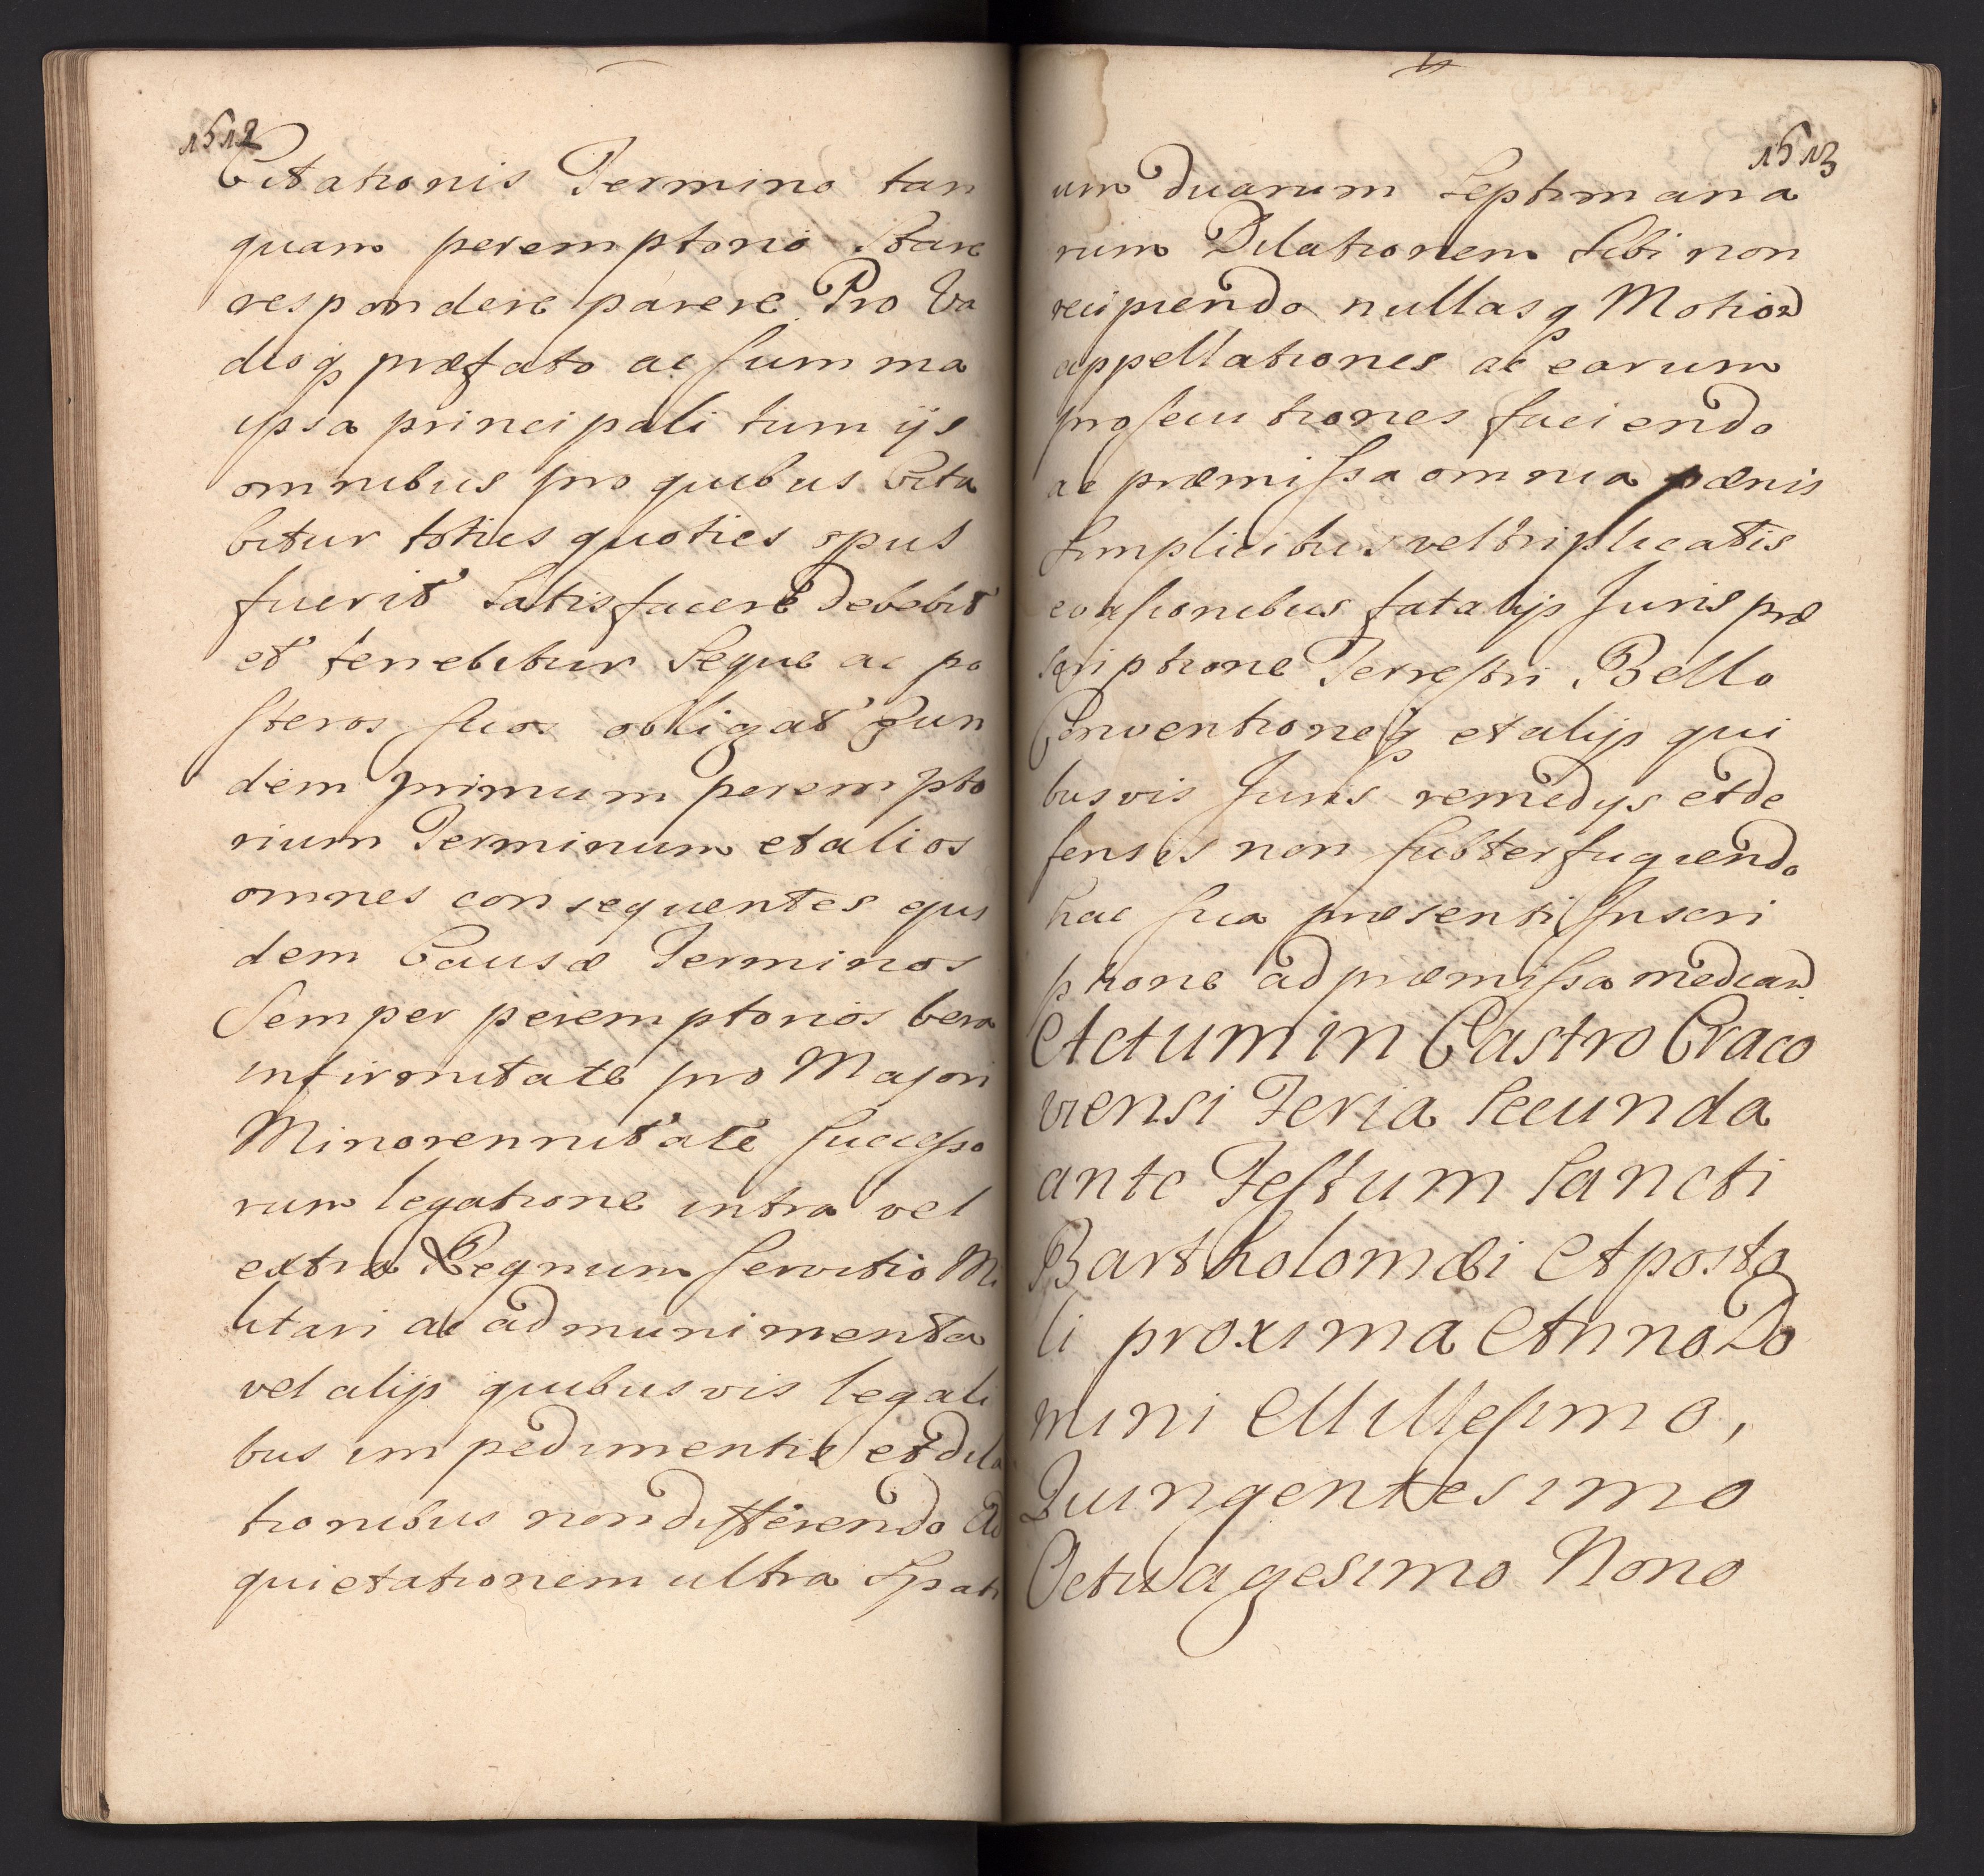 1512
Citationis Termino tan
quam peremptorio Stare
respondere parere Pro Va
dioq præfato ac summa
ipsa principali tum ijs
omnibus pro quibus Cita
bitur toties quoties opus
fuerit Satisfacere debebit
et tenebitur Seque ac po
steros suos obligat Eun
dem primum perempto
rium Terminum et alios
omnes consequentes ejus
dem Causæ Terminos
Semper peremptorios vera
infirmitate pro Majori
Minorennitate Successo
rum legatione intra vel
extra Regnum Servitio Mi
litari ac ad munimenta
vel alijs quibusvis legali
bus impedimentis et dila
tionibus non differendo Ad
quietationem ultra Spati
1513
um duarum Septimana
rum Dilationem Sibi non
recipiendo nullasq Motiones
appellationes ac earum
prosecutiones faciendo
ac præmissa omnia pænis
Simplicibus vel triplicatis
evasionibus fatalijs Juris præ
scriptione Terrestri Bello
Conventioneq et alijs qui
busvis Juris remedijs et de
fensis non subterfugiendo
hac sua præsenti Inscri
ptione ad præmissa mediand
Actum in Castro Craco
viensi Feria Secunda
ante Festum Sancti
Bartholomæi Aposto
li proxima Anno Do
mini Millesimo,
Quingentesimo
Octuagesimo Nono